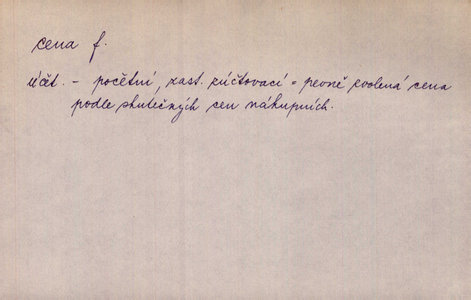 cena f.
účet. - početní, zast. zúčtovací = pevně zvolená cena
podle skutečných cen nákupních.